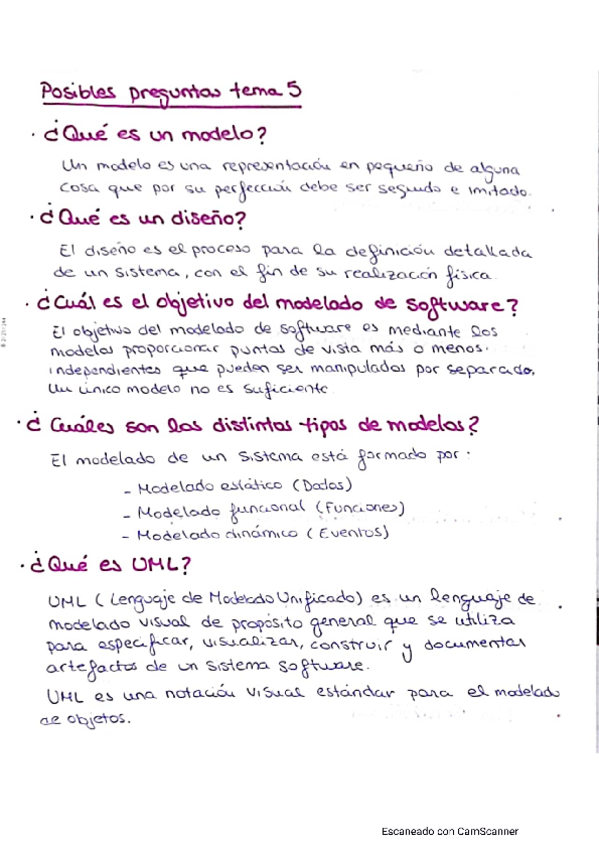 Posibles preguntas tema 5
· ¿Qué es un modelo?
Un modelo es una representación en pequeño de alguna
cosa que por su perfección debe ser seguido e imitado.
· ¿Qué es un diseño?
El diseño es el proceso para la definición detallada
de un sistema, con el fin de su realización física.
· ¿Cuál es el objetivo del modelado de software?
El objetivo del modelado de software es mediante los
modelos proporcionar puntos de vista más o menos.
independientes que pueden ser manipulados por separado.
Un único modelo no es suficiente.
· ¿Cuáles son los distintos tipos de modelos?
El modelado de un sistema está formado por:
- Modelado estático (Datos)
- Modelado funcional (Funciones)
- Modelado dinámico (Eventos)
· ¿Qué es UML?
UML (Lenguaje de Modelado Unificado) es un lenguaje de
modelado visual de propósito general que se utiliza
para especificar, visualizar, construir y documentar
artefactos de un sistema software.
UML es una notación visual estándar para el modelado
de objetos.
Escaneado con CamScanner